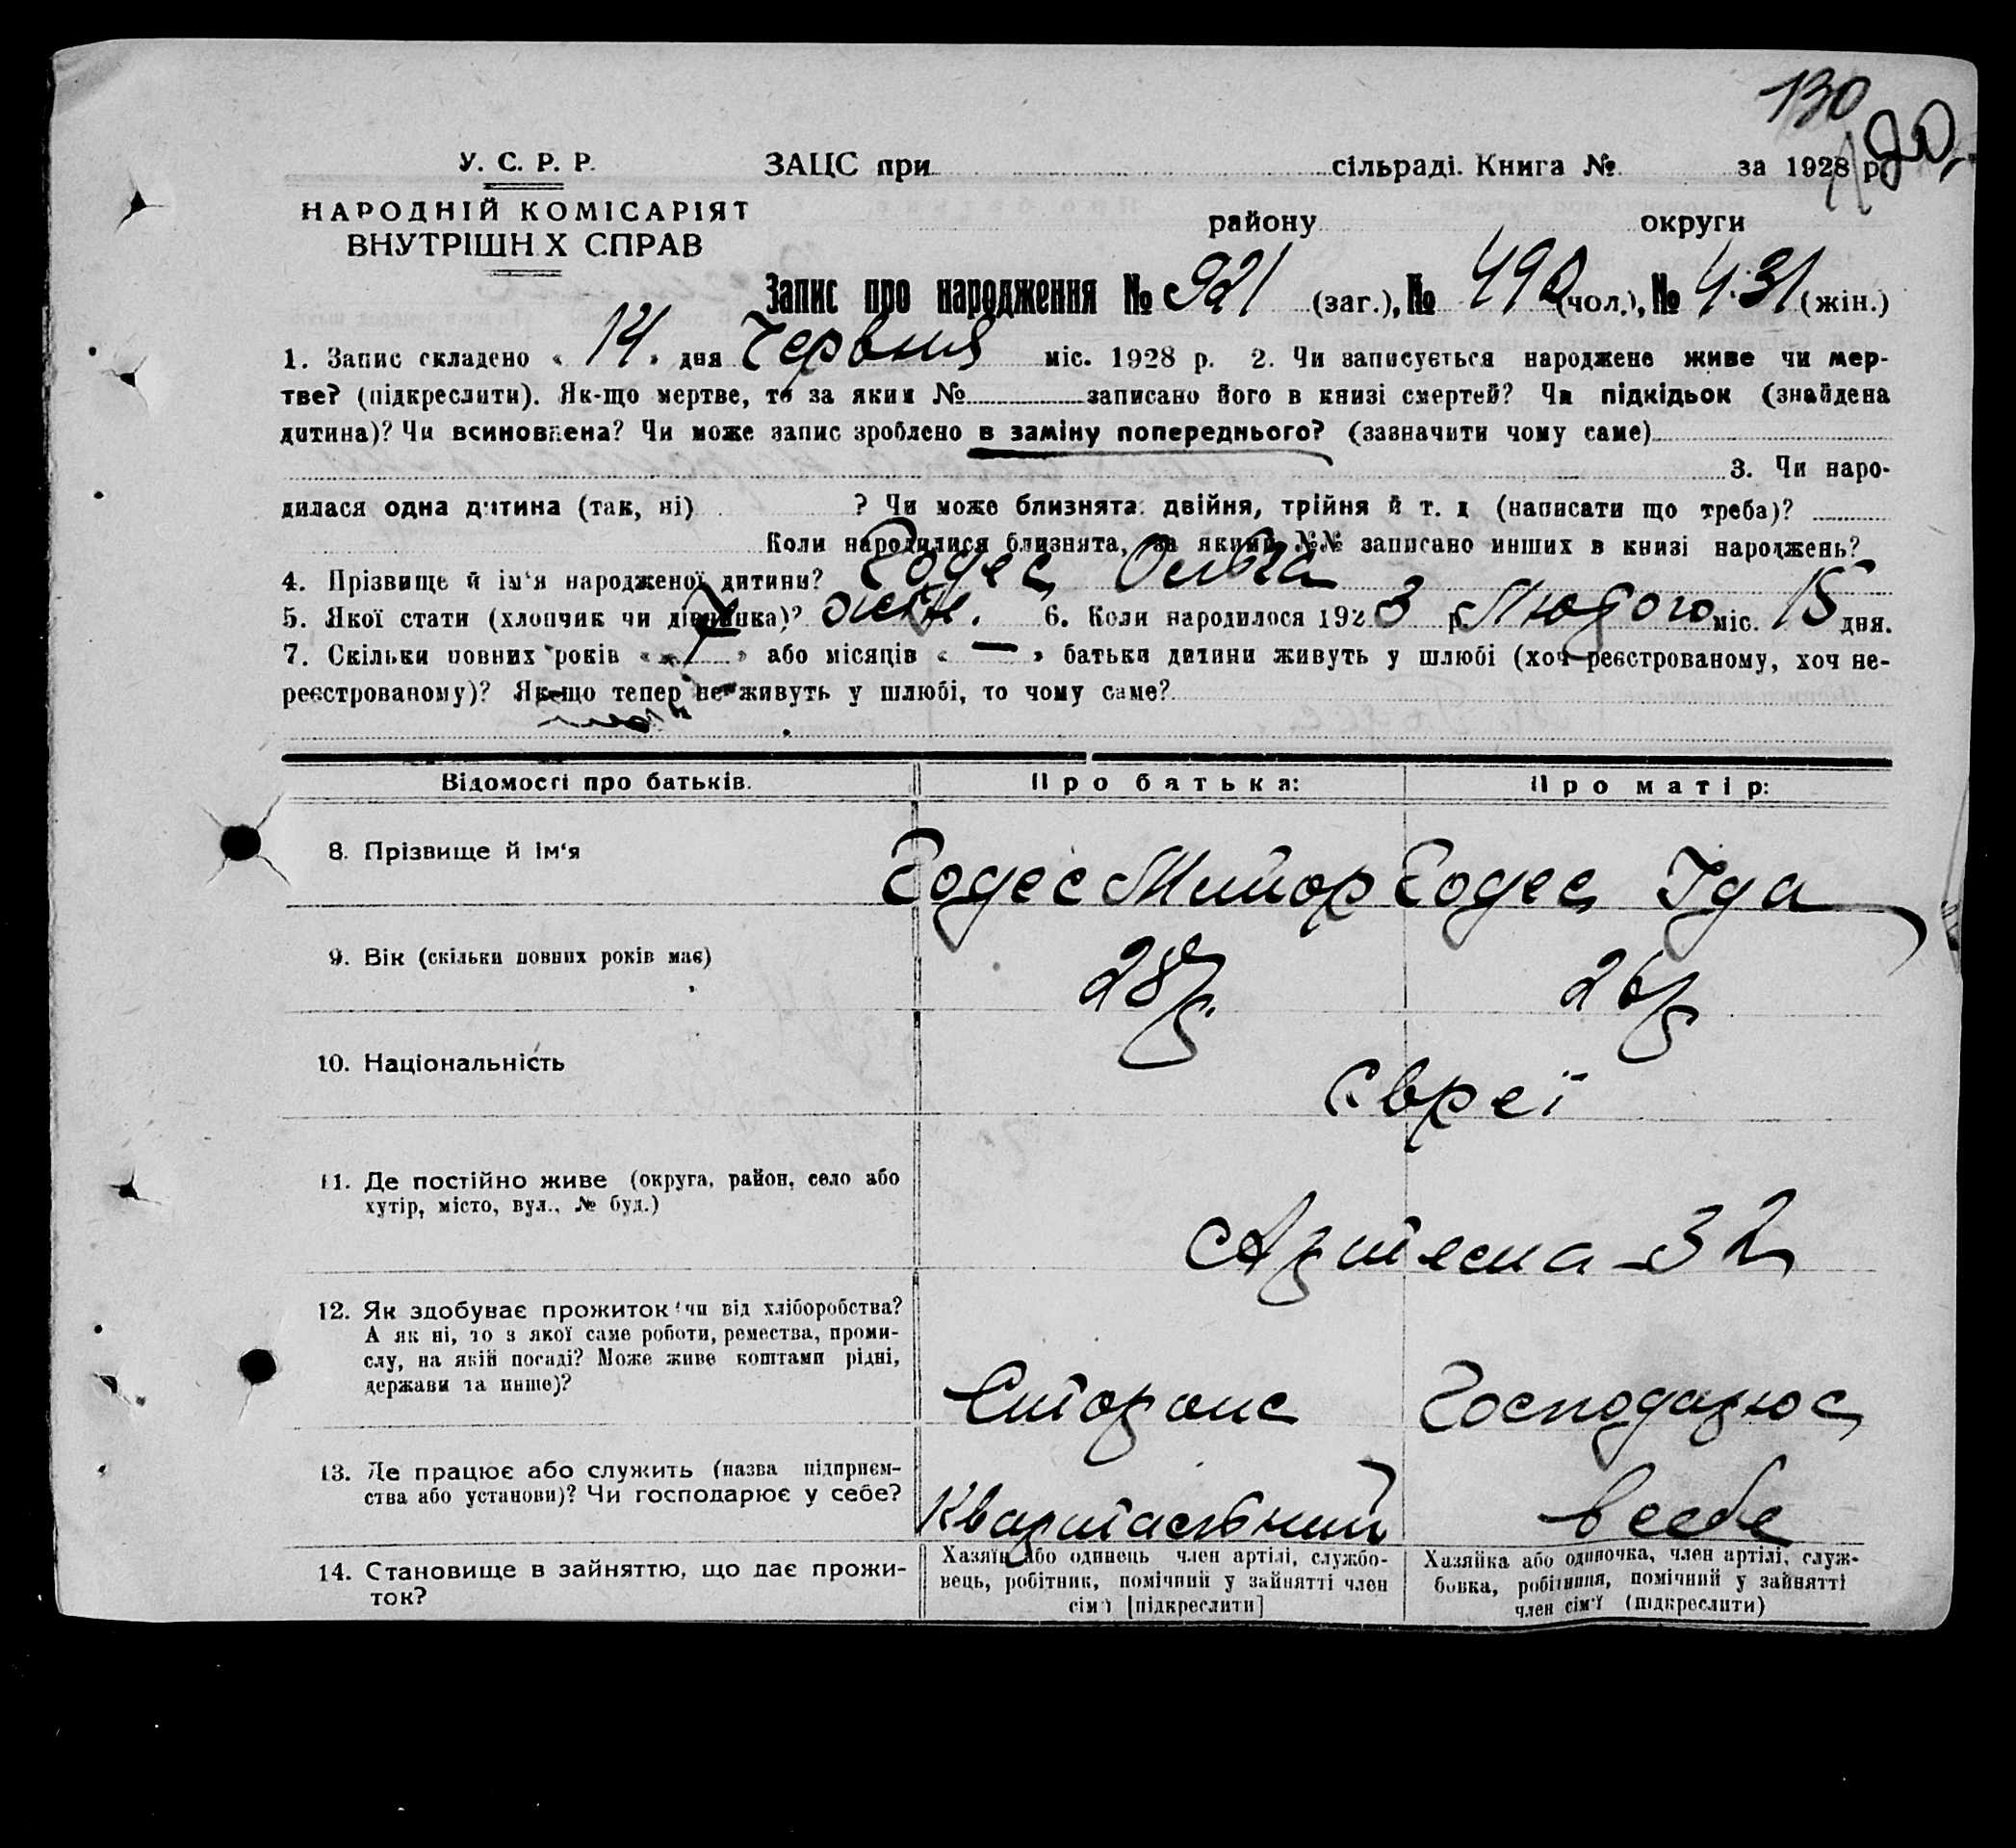 130
У. С. Р. Р. ЗАЦС при сільраді. Книга № за 1928 р.
НАРОДНІЙ КОМІСАРІЯТ району округи
ВНУТРІШН Х СПРАВ
Запис про народження № 921 (заг.), № 490 (чол.), № 431 (жін.)
1. Запис складено « 14 » дня Червня міс. 1928 р. 2. Чи записується народжене живе чи мер-
тве? (підкреслити). Як-що мертве, то за яким № записано його в книзі смертей? Чи підкідьок (знайдена
дитина)? Чи всиновлена? Чи може запис зроблено в заміну попереднього? (зазначити чому саме)
3. Чи наро-
дилася одна дитина (так, ні) ? Чи може близнята: двійня, трійня й т. д (написати що треба)?
Коли народилися близнята, за якими №№ записано инших в книзі народжень?
4. Прізвище й ім'я народженої дитини? Годес Ольга
5. Якої стати (хлопчик чи дівчинка)? жін. 6. Коли народилося 1923 р. Лютого міс. 15 дня.
7. Скільки повних років « » або місяців « — » батьки дитини живуть у шлюбі (хоч реєстрованому, хоч не-
реєстрованому)? Якщо тепер не живуть у шлюбі, то чому саме?
Відомості про батьків. Про батька: Про матір:
8. Прізвище й ім'я Годес Годес Іда
9. Вік (скільки повних років має) 28 р. 26 р
10. Національність Євреї
11. Де постійно живе (округа, район, село або
хутір, місто, вул., № буд.) Артема – 32
12. Як здобуває прожиток (чи від хліборобства?
А як ні, то з якої саме роботи, ремества, проми-
слу, на якій посаді? Може живе коштами рідні,
держави та инше)? Сторож Господарює
13. Де працює або служить (назва підприєм-
ства або установи)? Чи господарює у себе? Квартальний в себе
14. Становище в зайняттю, що дає прожи-
ток?
Хазяїн або одинець член артілі, службо-
вець, робітник, помічний у зайнятті член
сім'ї [підкреслити]
Хазяйка або одиночка, член артілі, служ-
бовка, робітниця, помічний у зайнятті
член сім'ї (підкреслити)